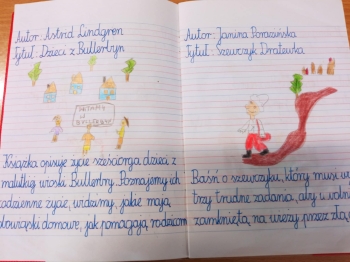 Autor: Astrid Lindgren
Tytuł: Dzieci z Bullerbyn
WITAMY
W
BULLERBYN
Książka opisuje życie sześciorga dzieci z
malutkiej wioski Bullerbyn. Poznajemy ich
codzienne życie, widzimy, jakie mają
obowiązki domowe, jak pomagają rodzicom
Autor: Janina Porazińska
Tytuł: Szewczyk Dratewka
Baśń o szewczyku, który musi w
trzy trudne zadania, aby uwoln
zamkniętą na wieży przez złą c